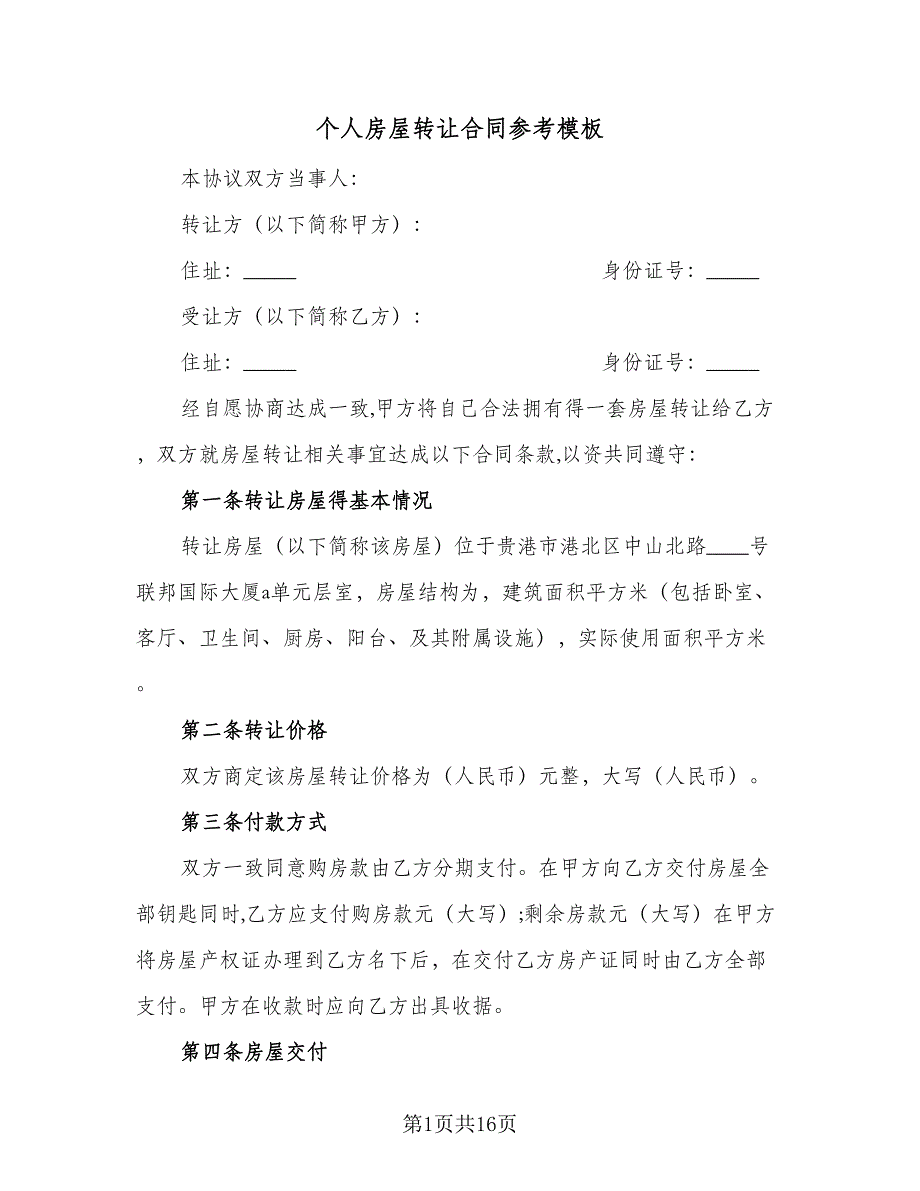 个人房屋转让合同参考模板
本协议双方当事人：
转让方（以下简称甲方）：
住址：_____ 身份证号：_____
受让方（以下简称乙方）：
住址：_____ 身份证号：_____
经自愿协商达成一致,甲方将自己合法拥有得一套房屋转让给乙方
，双方就房屋转让相关事宜达成以下合同条款,以资共同遵守：
第一条转让房屋得基本情况
转让房屋（以下简称该房屋）位于贵港市港北区中山北路____号
联邦国际大厦a单元层室，房屋结构为，建筑面积平方米（包括卧室、
客厅、卫生间、厨房、阳台、及其附属设施），实际使用面积平方米
。
第二条转让价格
双方商定该房屋转让价格为（人民币）元整，大写（人民币）。
第三条付款方式
双方一致同意购房款由乙方分期支付。在甲方向乙方交付房屋全
部钥匙同时,乙方应支付购房款元（大写）;剩余房款元（大写）在甲方
将房屋产权证办理到乙方名下后，在交付乙方房产证同时由乙方全部
支付。甲方在收款时应向乙方出具收据。
第四条房屋交付
第1页共16页